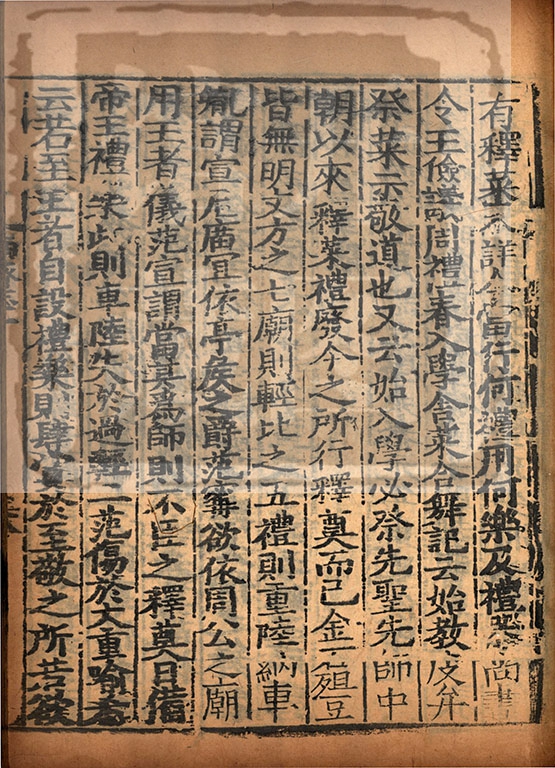 有釋菜未詳今當行何禮用何樂及禮器尚書
令王儉議周禮春入學舍菜合舞記云始教皮弁
祭菜示敬道也又云始入學必祭先聖先師中
朝以來釋菜禮廢今之所行釋奠而已金石俎豆
皆無明文方之七廟則輕比之五禮則重陸納車
胤謂宣尼廟宜依亭侯之爵范寗欲依周公之廟
用王者儀范宣謂當其為師則不臣之釋奠日備
帝王禮樂此則車陸失於過輕二范傷於太重喻希
云若至王者自設禮樂則肆賞於至敬之所若欲